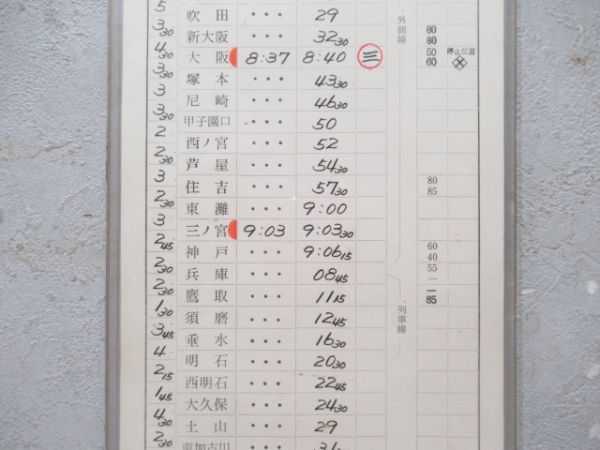 5 吹田 ・・・ 29
3 30 新大阪 ・・・ 32 30 80 80
4 30 大阪 8:37 8:40 三 50 60 停止位置
3 30 塚本 ・・・ 43 30
3 尼崎 ・・・ 46 30
3 30 甲子園口 ・・・ 50
2 西ノ宮 ・・・ 52
2 30 芦屋 ・・・ 54 30
3 住吉 ・・・ 57 30 80 85
2 30 東灘 ・・・ 9:00
3 三ノ宮 9:03 9:03 30
2 45 神戸 ・・・ 9:06 15 60 40 55
2 30 兵庫 ・・・ 08 45
2 30 鷹取 ・・・ 11 15 85
1 30 須磨 ・・・ 12 45
3 45 垂水 ・・・ 16 30
4 明石 ・・・ 20 30
2 15 西明石 ・・・ 22 45
1 45 大久保 ・・・ 24 30
4 30 土山 ・・・ 29
2 30 東加古川 ・・・ 31 30
外側線
列車線